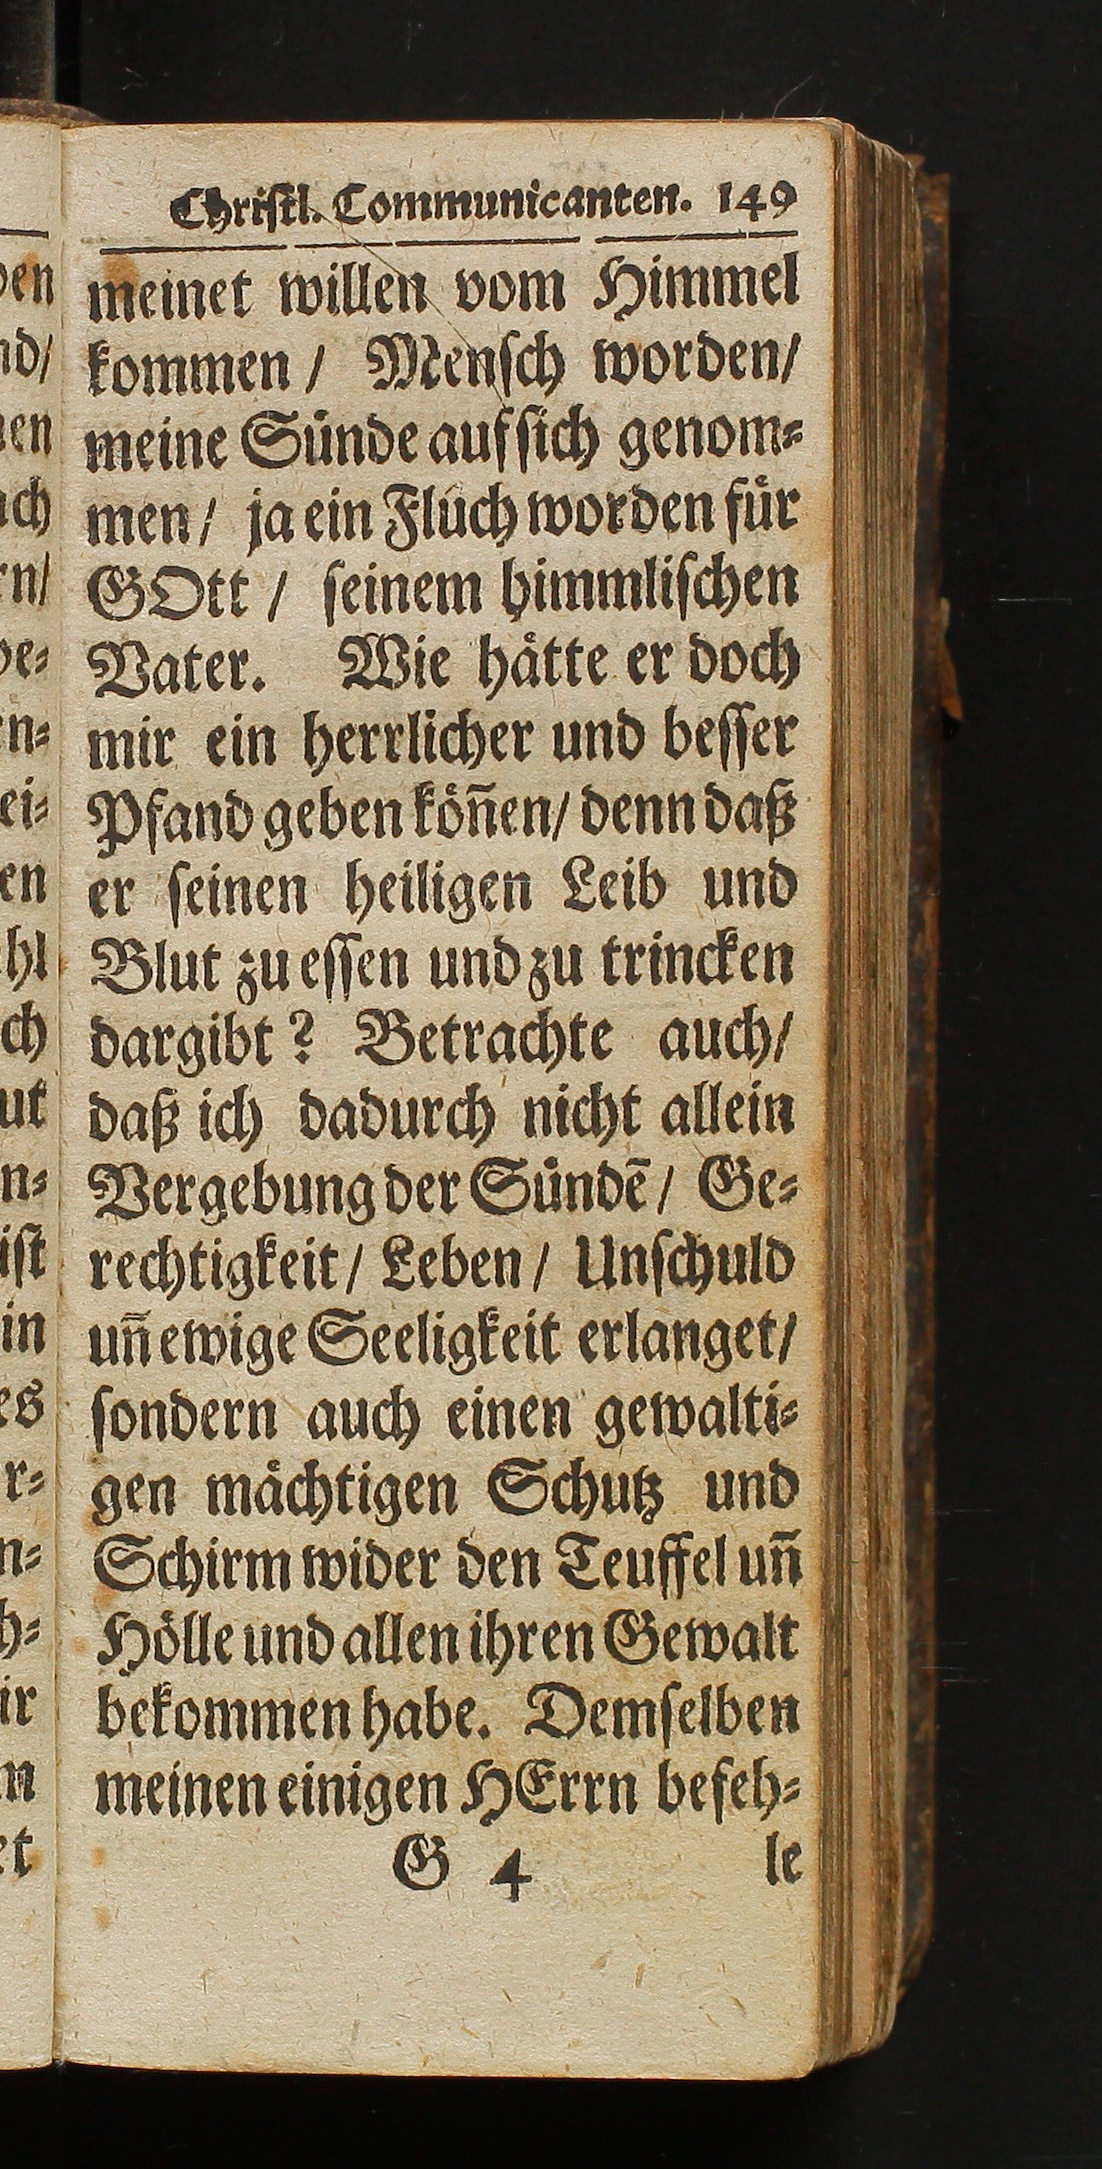 Christl. Communicanten. 149
meinet willen vom Himmel
kommen / Mensch worden/
meine Sünde auf sich genom-
men / ja ein Fluch worden für
GOtt / seinem himmlischen
Vater. Wie hätte er doch
mir ein herrlicher und besser
Pfand geben köñen/ denn daß
er seinen heiligen Leib und
Blut zu essen und zu trincken
dargibt? Betrachte auch/
daß ich dadurch nicht allein
Vergebung der Sündē / Ge-
rechtigkeit / Leben / Unschuld
uñ ewige Seeligkeit erlanget/
sondern auch einen gewalti-
gen mächtigen Schutz und
Schirm wider den Teuffel uñ
Hölle und allen ihren Gewalt
bekommen habe. Demselben
meinen einigen HErrn befeh-
G 4 le